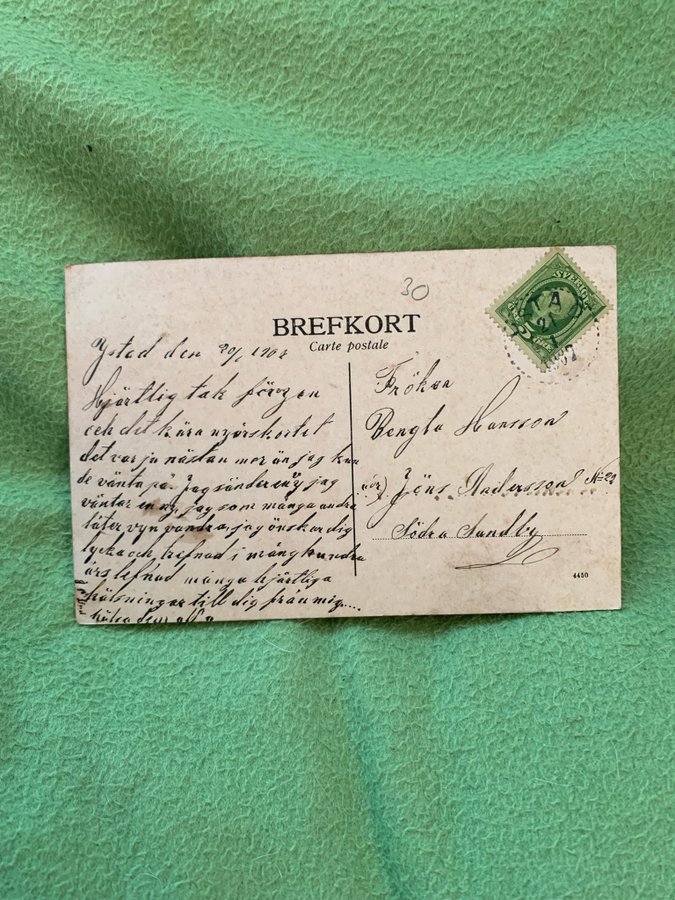 30
BREFKORT
Carte postale
SVERIGE
YSTAD
21
1
Ystad den 20/1 190
Hjärtlig tak för
och det kära nyårskortet
det var ju nästan mer än jag kun
de vänta på jag sänder en ny jag
väntar en ny, jag som många andra
låter vyn vandra, jag önskar dig
lycka och lefnad i mång hundra
års lefnad många hjärtliga
hälsningar till dig från mig....
hälsa
Fröken
Bengta Hansson
Jöns Andersson No 29
Södra Sandby
4450